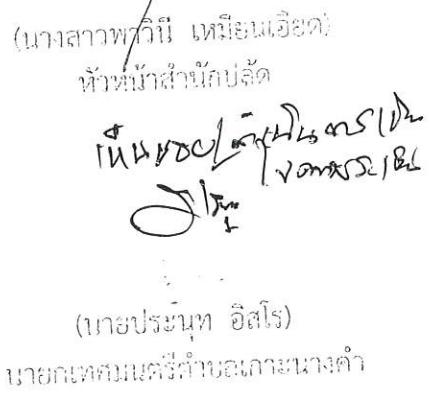 (นางสาวพาวินี เหมือนเอียด)
หัวหน้าสำนักปลัด
เห็นชอบ/ดำเนินการ
(นายประนุท อิสโร)
นายกเทศมนตรีตำบลเกาะนางคำ